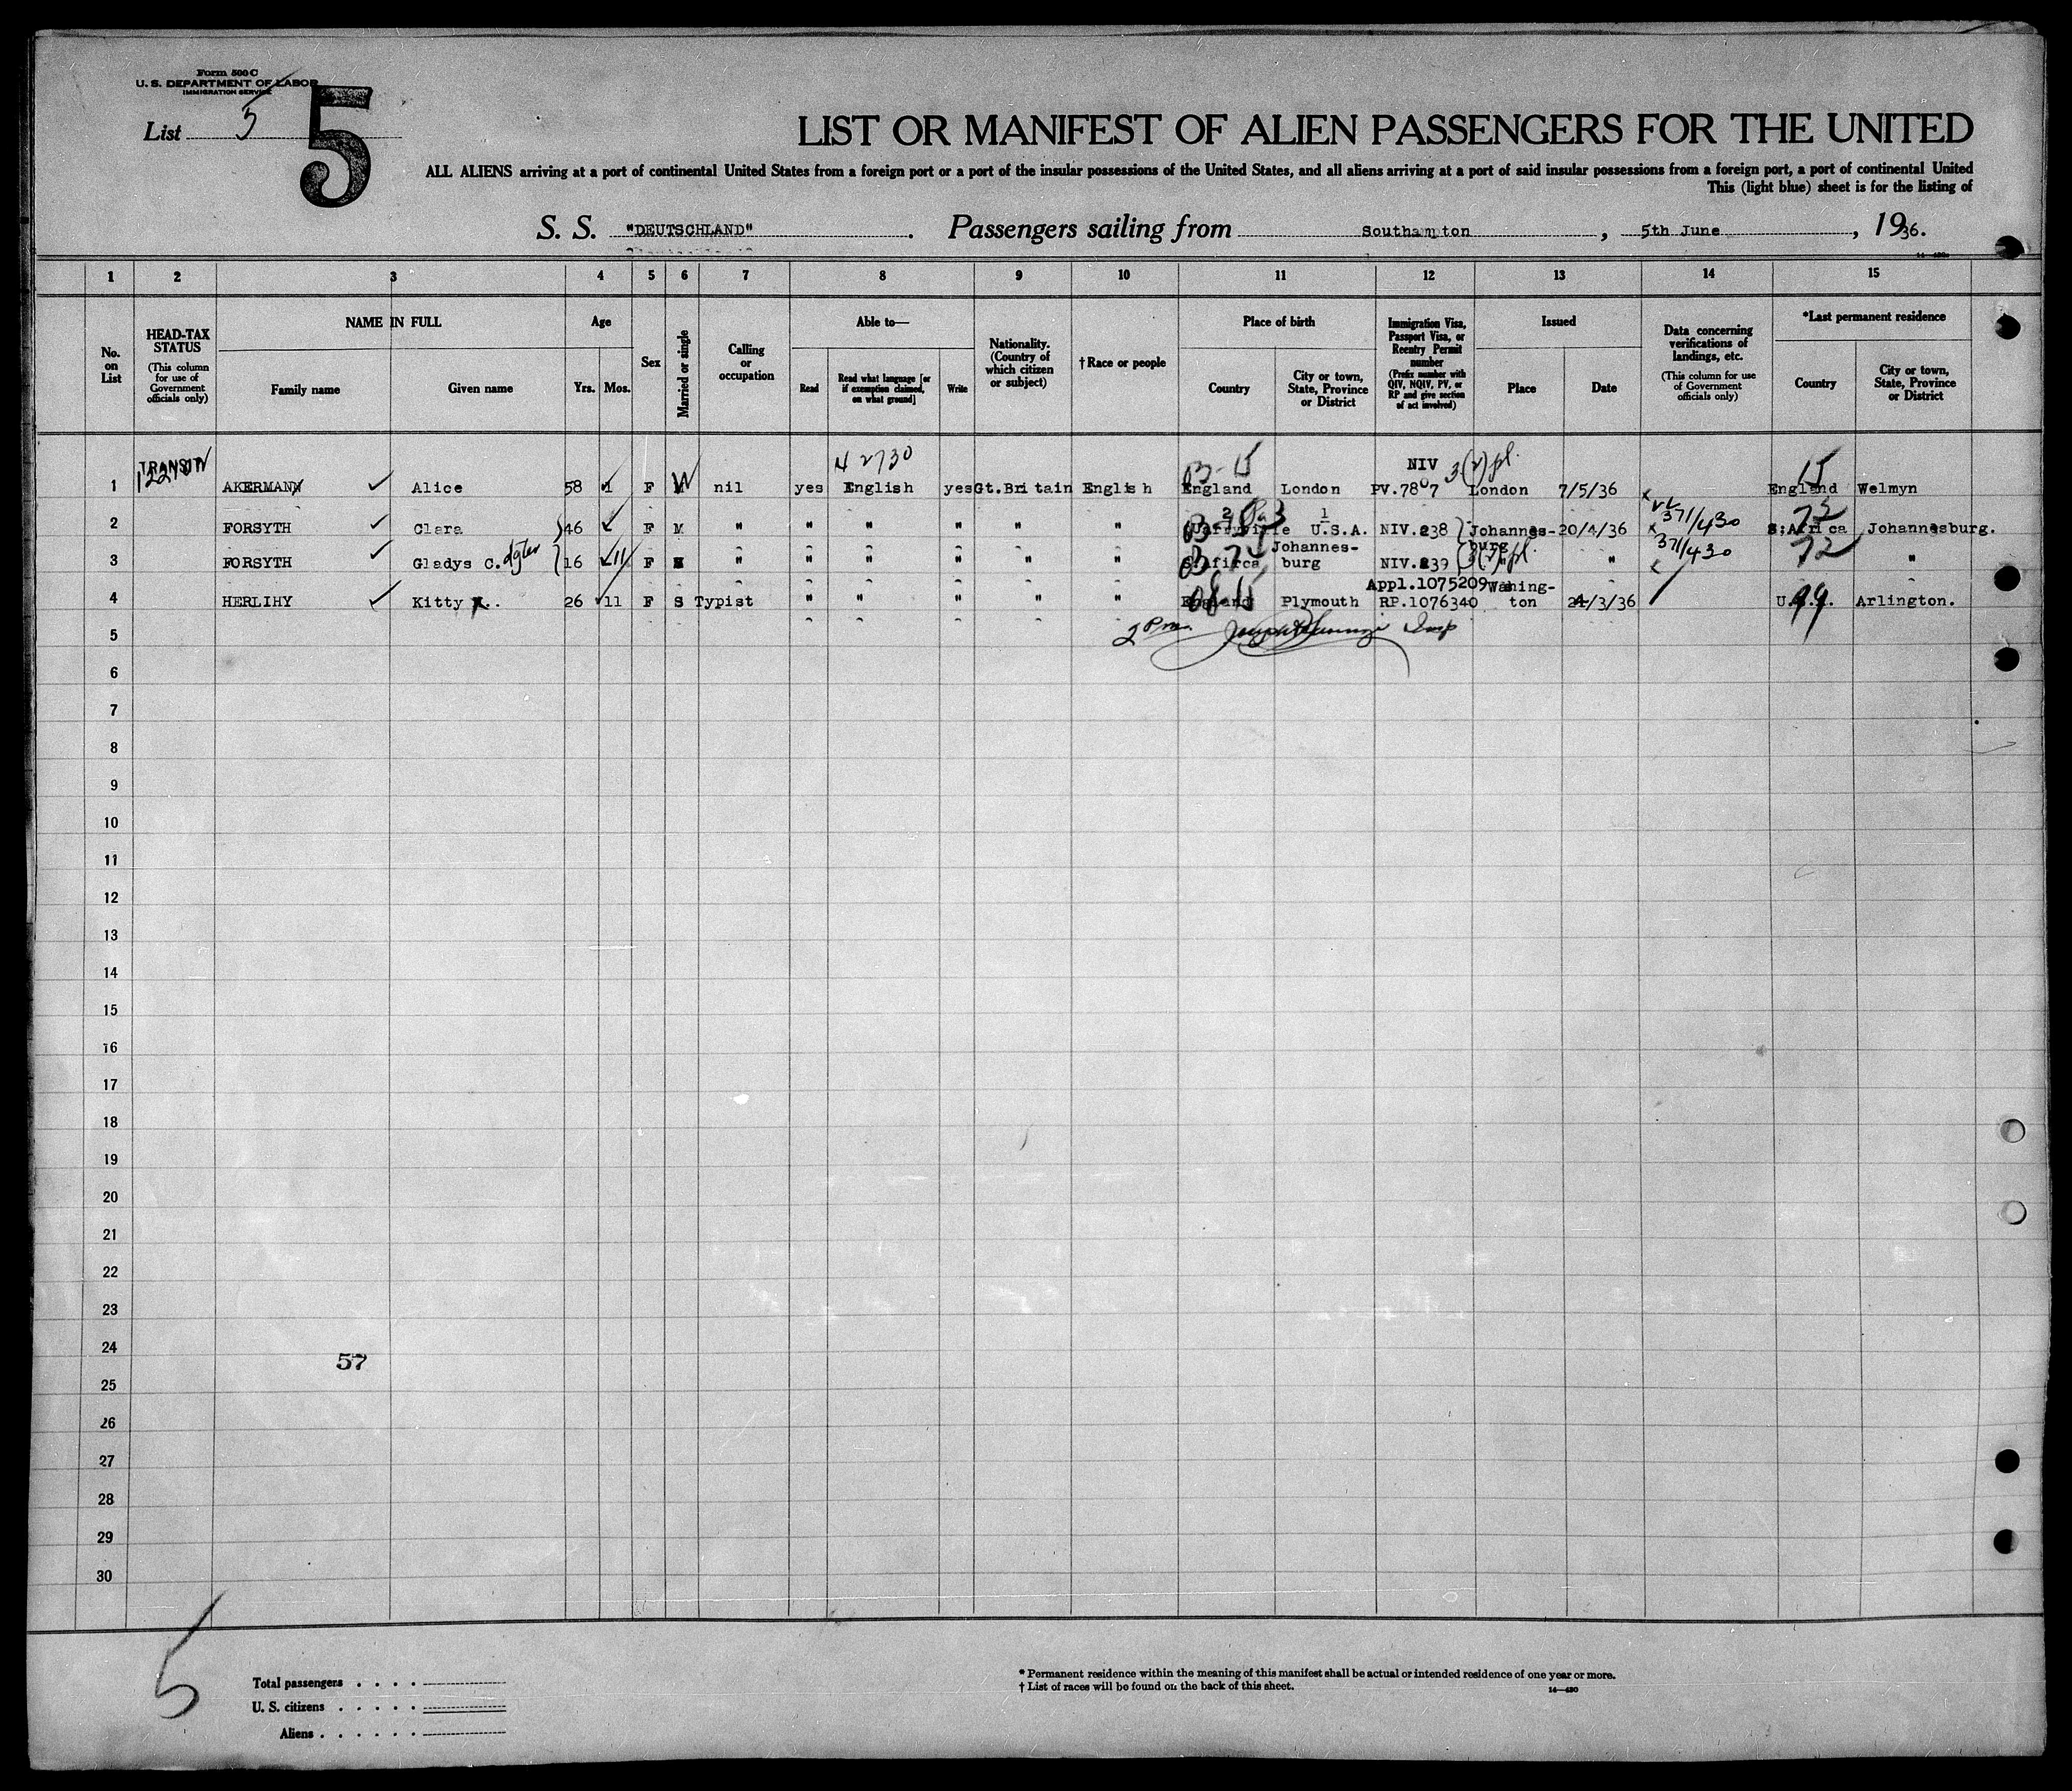 Form 500 C
U. S. DEPARTMENT OF LABOR
IMMIGRATION SERVICE
List 5
5
LIST OR MANIFEST OF ALIEN PASSENGERS FOR THE UNITED
ALL ALIENS arriving at a port of continental United States from a foreign port or a port of the insular possessions of the United States, and all aliens arriving at a port of said insular possessions from a foreign port, a port of continental United
This (light blue) sheet is for the listing of
S. S. "DEUTSCHLAND" . Passengers sailing from Southampton , 5th June , 1936.
1 2 3 4 5 6 7 8 9 10 11 12 13 14 15
No. on List
HEAD-TAX STATUS
(This column for use of Government officials only)
NAME IN FULL
Family name Given name
Age
Yrs. Mos.
Sex
Married or single
Calling or occupation
Able to—
Read
Read what language [or if exemption claimed, on what ground]
Write
Nationality. (Country of which citizen or subject)
†Race or people
Place of birth
Country
City or town, State, Province or District
Immigration Visa, Passport Visa, or Reentry Permit number
(Prefix number with QIV, NQIV, PV, or RP and give section of act involved)
Issued
Place Date
Data concerning verifications of landings, etc.
(This column for use of Government officials only)
*Last permanent residence
Country
City or town, State, Province or District
TRANSIT 42730 B-15 NIV 3(2)pl. 15
1 AKERMANN Alice 58 1 F W nil yes English yes Gt.Britain English England London PV.7807 London 7/5/36 England Welmyn
371/430 72
2 FORSYTH Clara 46 F M " " " " " " U.S.A. NIV.238 Johannes- 20/4/36 S.Africa Johannesburg.
Johannes- burg 371/430 72
3 FORSYTH Gladys C. dgter 16 11 F " " " " " " S.Afirca burg NIV.239 " "
Appl.1075209 Washing-
4 HERLIHY Kitty 26 11 F S Typist " " " " " England Plymouth RP.1076340 ton 24/3/36 U.S.A. Arlington.
99
2 Pm Insp
5
6
7
8
9
10
11
12
13
14
15
16
17
18
19
20
21
22
23
24
57
25
26
27
28
29
30
5
Total passengers . . . .
U. S. citizens . . . . .
Aliens . . . . . .
* Permanent residence within the meaning of this manifest shall be actual or intended residence of one year or more.
† List of races will be found on the back of this sheet.
14—480